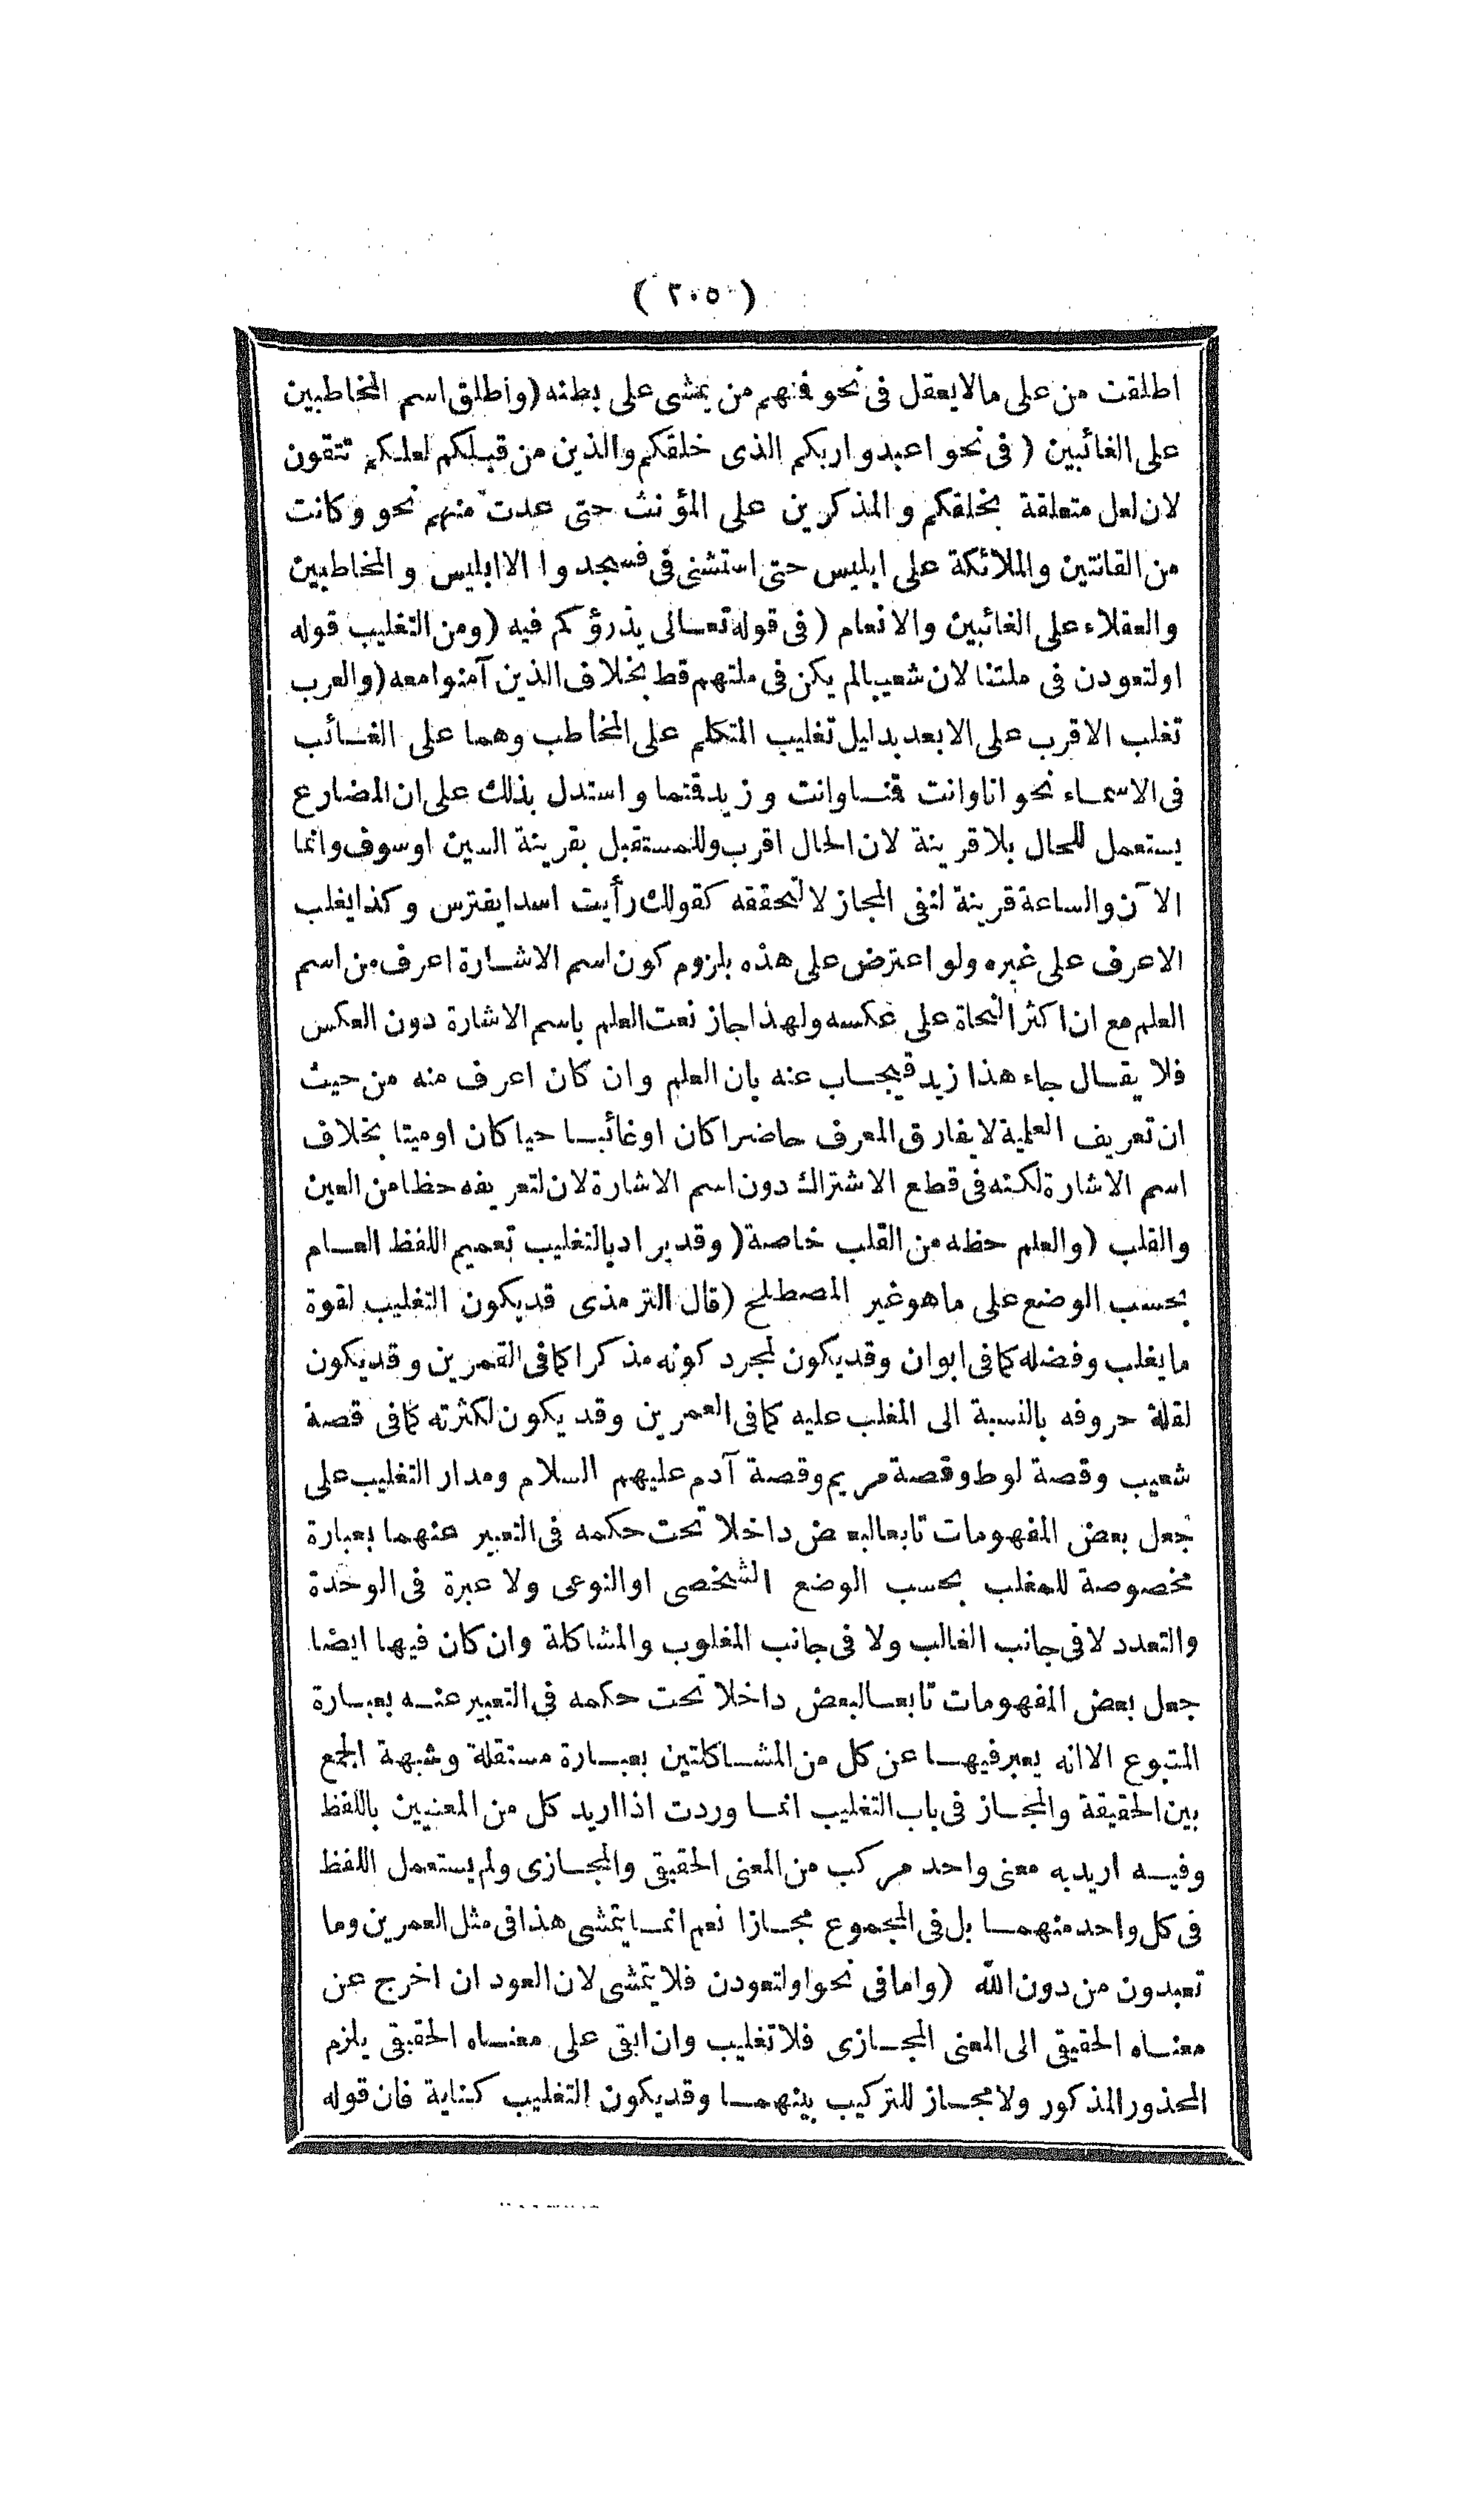 ( ٢٠٥ )
اطلقت من على مالايعقل فى نحو فنهم من يمشى على بطنه (واطلق اسم المخاطبين
على الغائبين ( فى نحو اعبدوا ربكم الذى خلقكم والذين من قبلكم لعلكم تتقون
لان لعل متعلقة بخلقكم والمذكرين على المؤنث حتى عدت منهم نحو وكانت
من القانتين والملائكة على ابليس حتى استثنى فى فسجدوا الا ابليس والمخاطبين
والعقلاء على الغائبين والانعام ( فى قوله تعالى يذرؤكم فيه (ومن التغليب قوله
اولتعودن فى ملتنا لان شعيبا لم يكن فى ملتهم قط بخلاف الذين آمنوا معه (والعرب
تغلب الاقرب على الابعد بدليل تغليب المتكلم على المخاطب وهما على الغائب
فى الاسماء نحو انا وانت قنا وانت وزيد قتما واستدل بذلك على ان المضارع
يستعمل للحال بلا قرينة لان الحال اقرب وللمستقبل بقرينة السين اوسوف وانما
الآن والساعة قرينة لنفى المجاز لا لتحققه كقولك رأيت اسدا يفترس وكذا يغلب
الاعرف على غيره ولو اعترض على هذه بلزوم كون اسم الاشارة اعرف من اسم
العلم مع ان اكثر النحاة على عكسه ولهذا جاز نعت العلم باسم الاشارة دون العكس
فلا يقال جاء هذا زيد فيجاب عنه بان العلم وان كان اعرف منه من حيث
ان تعريف العلمية لا يفارق المعرف حاضرا كان اوغائبا حيا كان اوميتا بخلاف
اسم الاشارة لكنه فى قطع الاشتراك دون اسم الاشارة لان لتعريفه حظا من العين
والقلب (والعلم حظه من القلب خاصة (وقد يراد بالتغليب تعميم اللفظ العام
بحسب الوضع على ما هو غير المصطلح (قال الترمذى قد يكون التغليب لقوة
ما يغلب وفضله كما فى ابوان وقد يكون لمجرد كونه مذكرا كما فى القمرين وقد يكون
لقلة حروفه بالنسبة الى المغلب عليه كما فى العمرين وقد يكون لكثرته كما فى قصة
شعيب وقصة لوط وقصة مريم وقصة آدم عليهم السلام ومدار التغليب على
جعل بعض المفهومات تابعا لبعض داخلا تحت حكمه فى التعبير عنهما بعبارة
مخصوصة للمغلب بحسب الوضع الشخصى اوالنوعى ولا عبرة فى الوحدة
والتعدد لا فى جانب الغالب ولا فى جانب المغلوب والمشاكلة وان كان فيها ايضا
جعل بعض المفهومات تابعا لبعض داخلا تحت حكمه فى التعبير عنه بعبارة
المتبوع الا انه يعبر فيها عن كل من المشاكلتين بعبارة مستقلة وشبهة الجمع
بين الحقيقة والمجاز فى باب التغليب انما وردت اذا اريد كل من المعنيين باللفظ
وفيه اريد به معنى واحد مركب من المعنى الحقيقى والمجازى ولم يستعمل اللفظ
فى كل واحد منهما بل فى المجموع مجازا نعم انما يتمشى هذا فى مثل العمرين وما
تعبدون من دون الله (واما فى نحو اولتعودن فلا يتمشى لان العود ان اخرج عن
معناه الحقيقى الى المعنى المجازى فلا تغليب وان ابقى على معناه الحقيقى يلزم
المحذور المذكور ولا مجاز للتركيب بينهما وقد يكون التغليب كناية فان قوله